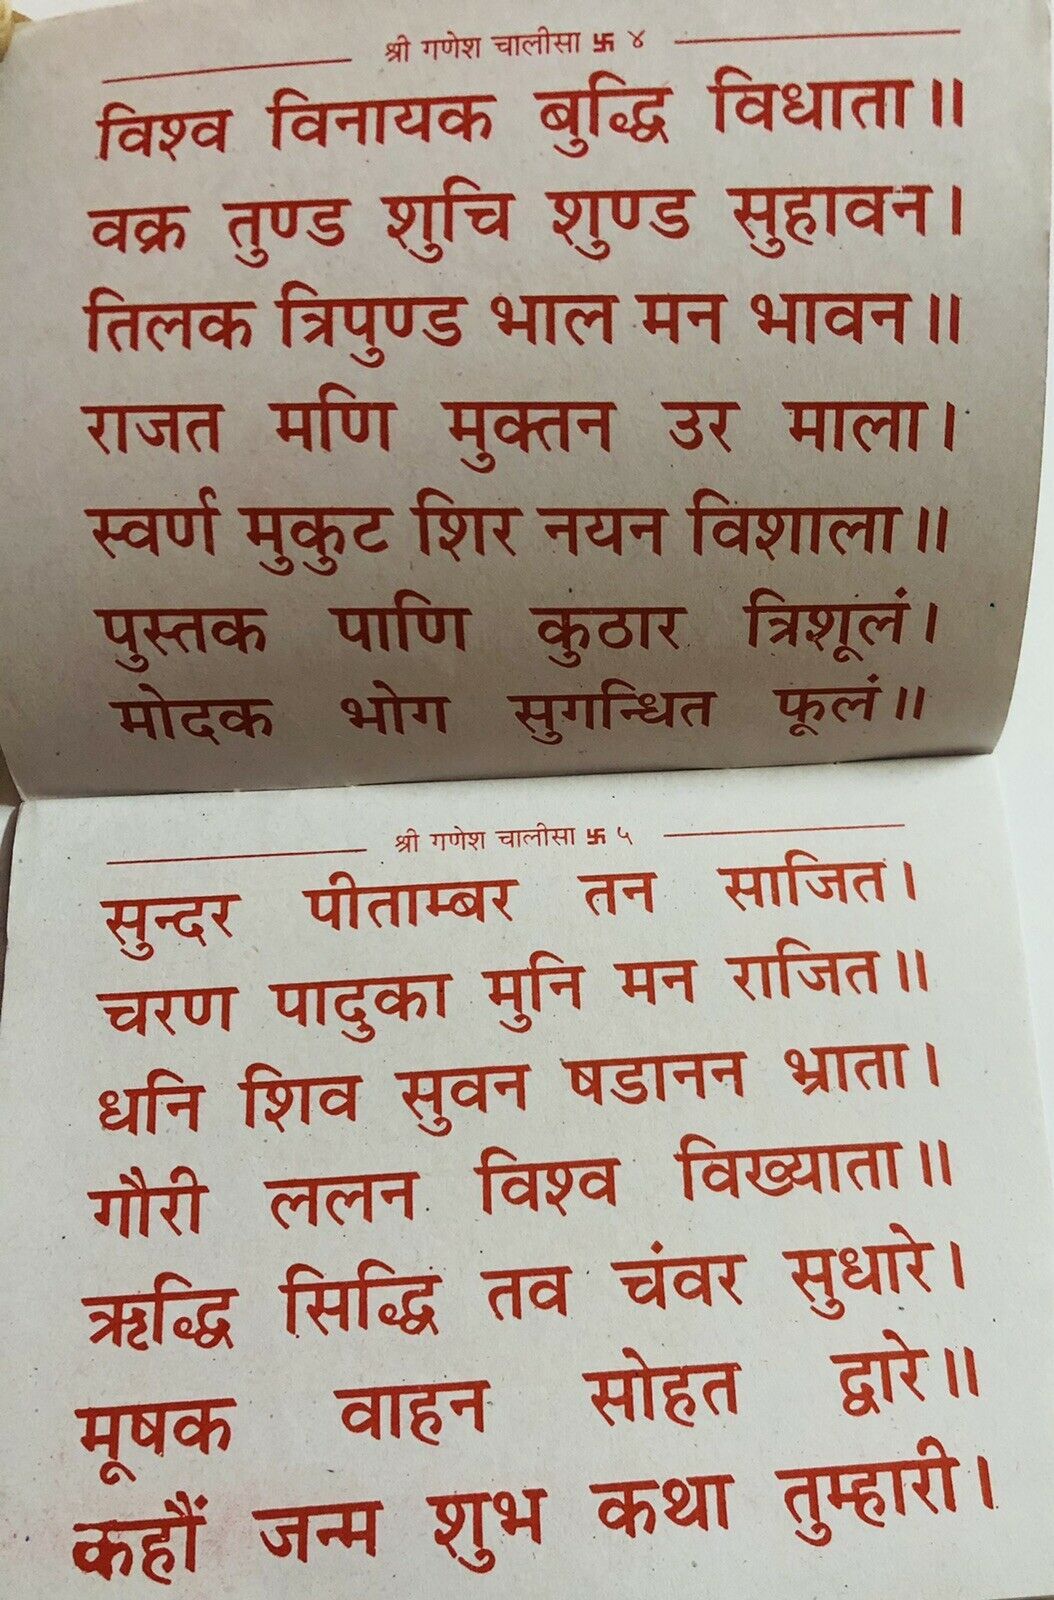 श्री गणेश चालीसा 卐 ४
विश्व विनायक बुद्धि विधाता॥
वक्र तुण्ड शुचि शुण्ड सुहावन।
तिलक त्रिपुण्ड भाल मन भावन॥
राजत मणि मुक्तन उर माला।
स्वर्ण मुकुट शिर नयन विशाला॥
पुस्तक पाणि कुठार त्रिशूलं।
मोदक भोग सुगन्धित फूलं॥
श्री गणेश चालीसा 卐 ५
सुन्दर पीताम्बर तन साजित।
चरण पादुका मुनि मन राजित॥
धनि शिव सुवन षडानन भ्राता।
गौरी ललन विश्व विख्याता॥
ऋद्धि सिद्धि तव चंवर सुधारे।
मूषक वाहन सोहत द्वारे॥
कहौं जन्म शुभ कथा तुम्हारी।